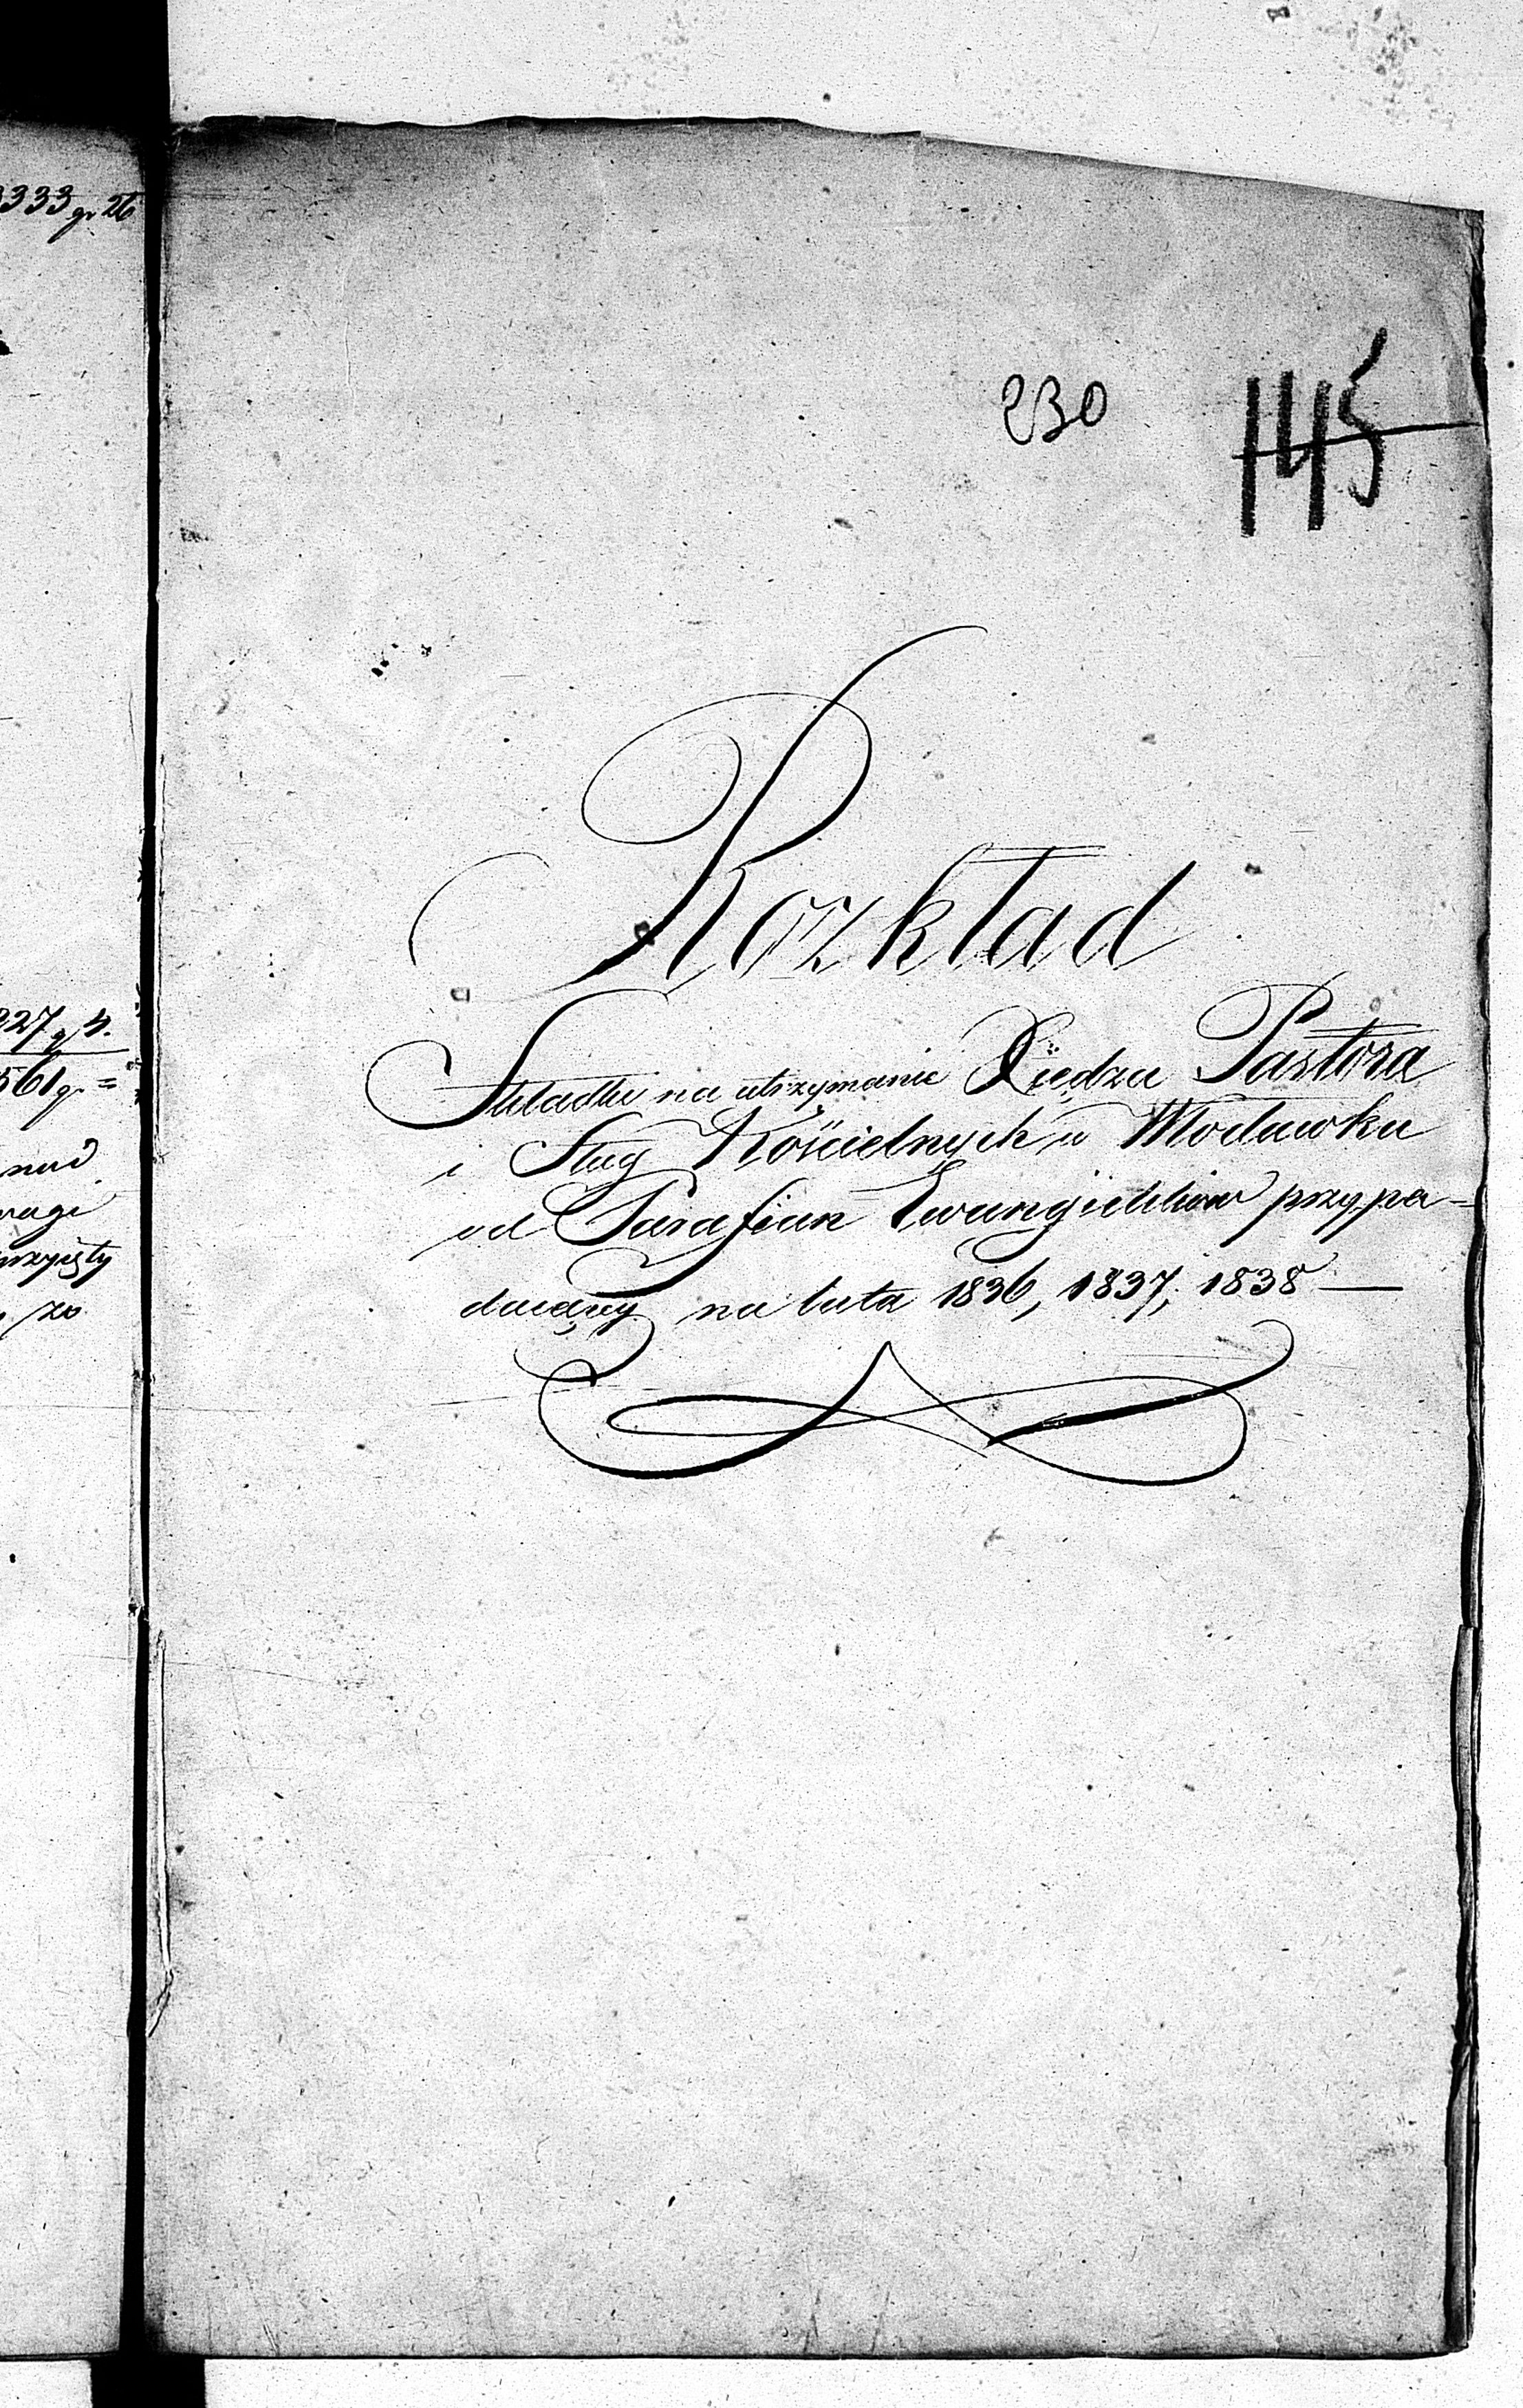 333 gr 26
227 g 4.
561 gr =
nad
wagi
zo
230
145
Rozkład
Składki na utrzymanie Xiędza Pastora
i Sług Kościelnych w Włocławku
od Parafian Ewangielików przypa=
daiącey na lata 1836, 1837, 1838 —